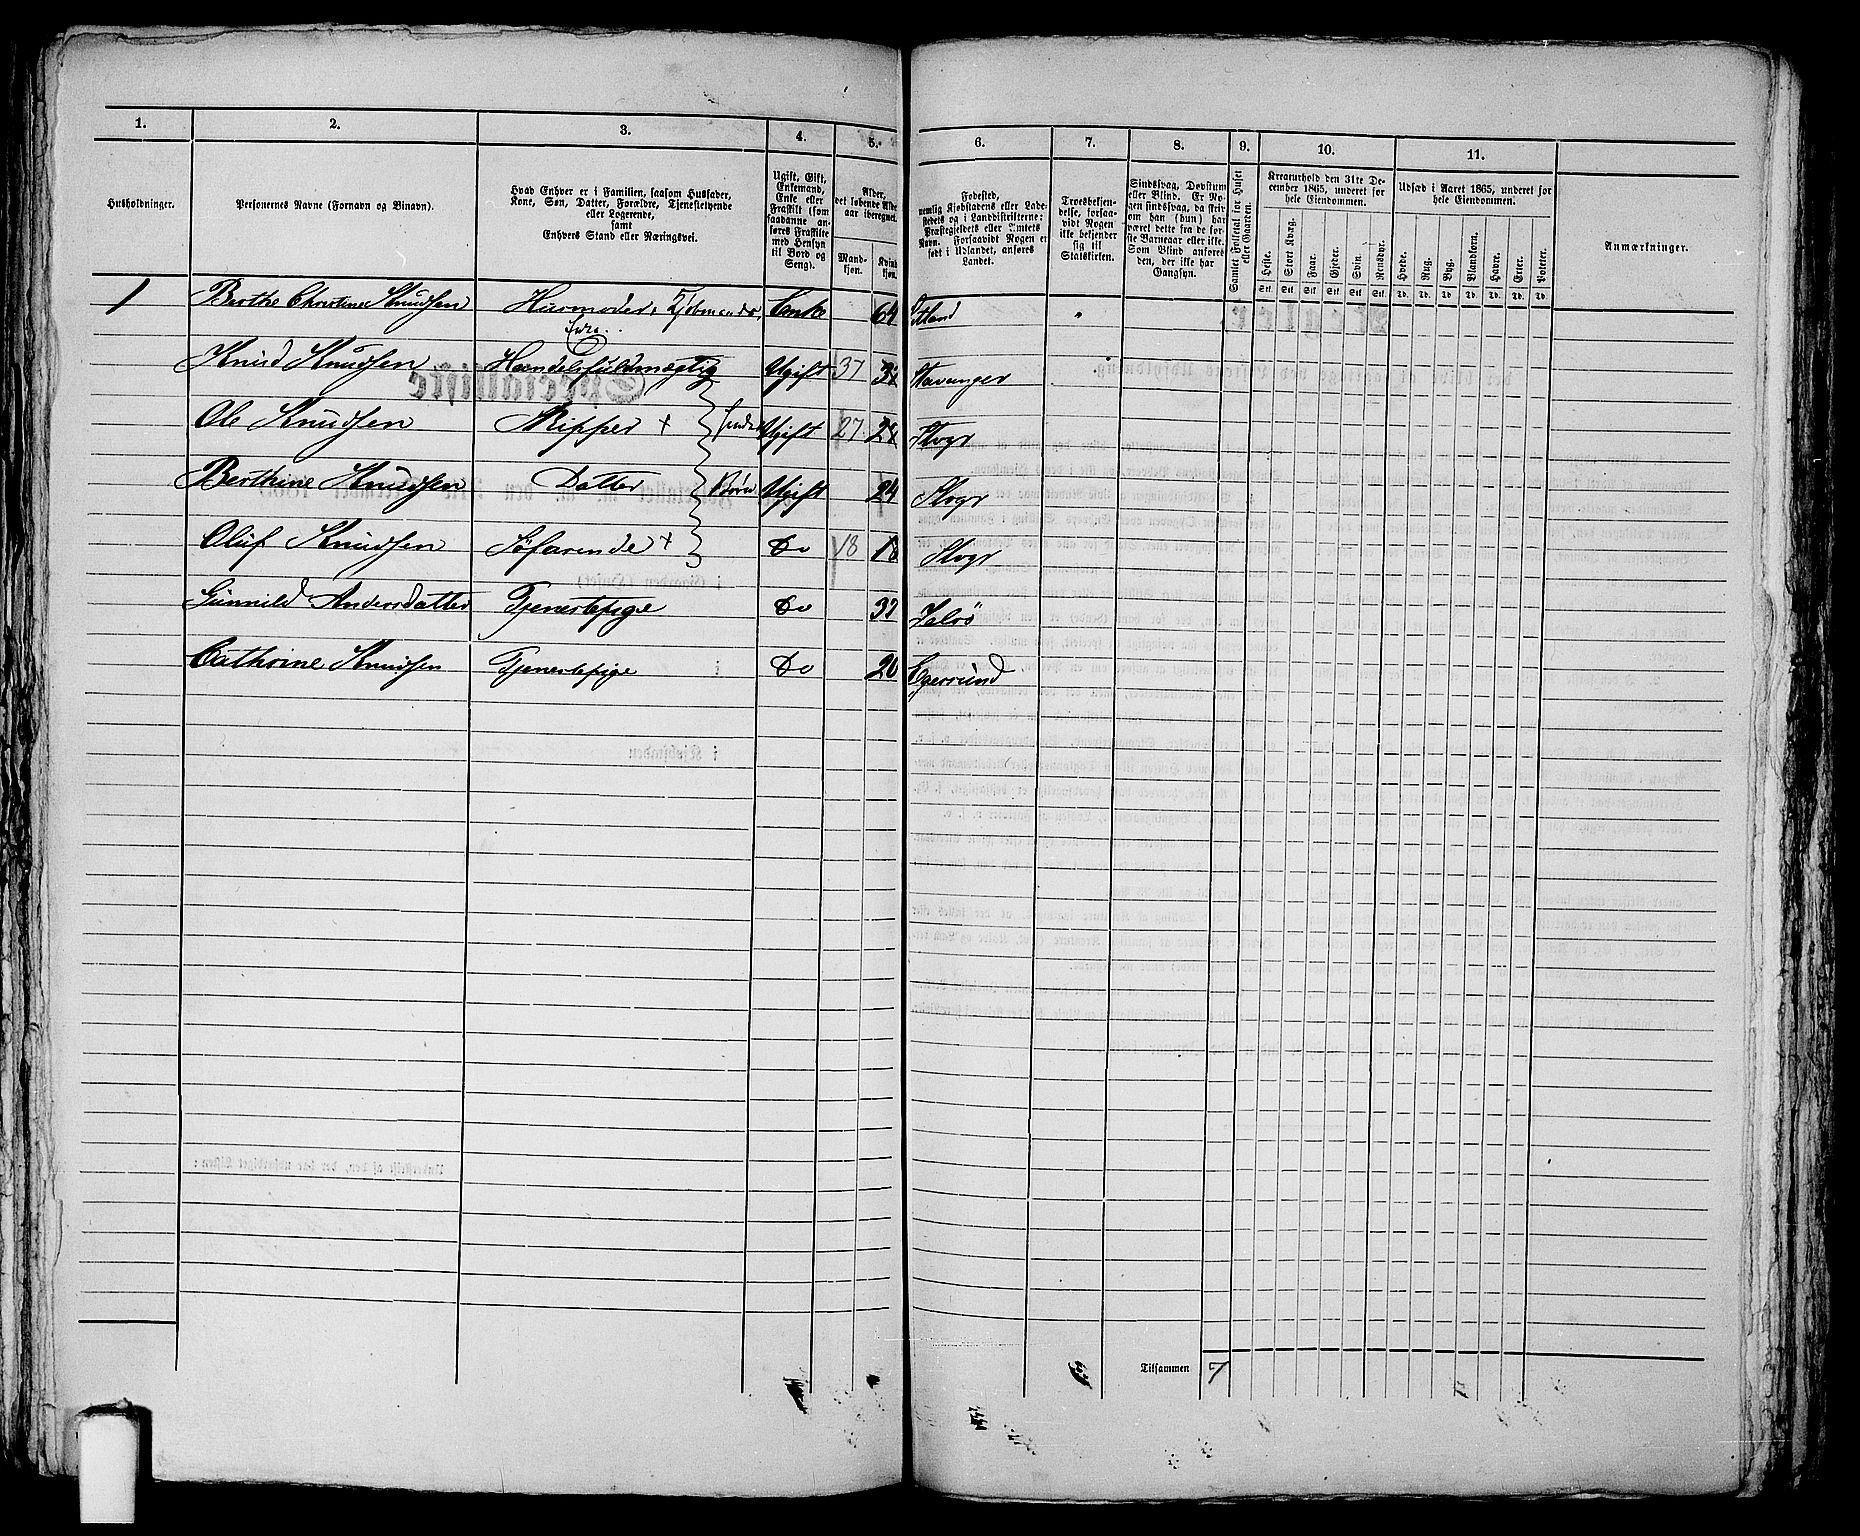 1. 2. 3. 4. 5. 6. 7. 8. 9. 10. 11.
Husholdninger.
Personernes Navne (Fornavn og Binavn).
Hvad Enhver er i Familien, saasom Husfader,
Kone, Søn, Datter, Forældre, Tjenestetyende
eller Logerende,
samt
Enhvers Stand eller Næringsvei.
Ugift, Gift,
Enkemand,
Enke eller
Fraskilt (som
saadanne an-
føres Fraskilte
med Hensyn
til Bord og
Seng).
Alder,
det løbende Alders-
aar iberegnet.
Mand-
kjøn.
Kvinde-
kjøn.
Fødested,
nemlig Kjøbstadens eller Lade-
stedets og i Landdistrikterne:
Præstegjeldets eller Amtets
Navn. Forsaavidt Nogen er
født i Udlandet, anføres
Landet.
Troesbekjen-
delse, forsaa-
vidt Nogen
ikke bekjender
sig til
Statskirken.
Sindssvag, Døvstum
eller Blind. Er No-
gen sindssvag, da skriv
om han (hun) har
været dette fra de før-
ste Barneaar eller ikke.
Som Blind anføres
den, der ikke har
Gangsyn.
Samlet Folketal for Huset
eller Gaarden.
Kreaturhold den 31te De-
cember 1865, underet for
hele Eiendommen.
Heste. Stort Kvæg. Faar. Gjeder. Svin. Rensdyr.
Stk. Stk. Stk. Stk. Stk. Stk.
Udsæd i Aaret 1865, underet for
hele Eiendommen.
Hvede. Rug. Byg. Blandkorn. Havre. Erter. Poteter.
Td. Td. Td. Td. Td. Td. Td.
Anmærkninger.
1 Berthe Christine Knudsen Husmoder, Kjøbmands Enke 64
Knud Knudsen Handelsfuldmægtig Ugift 37 37 Stavanger
Ole Knudsen Skipper + Ugift 27 27 Stvgr
Berthine Knudsen Datter Børn Ugift 24 Stvgr
Oluf Knudsen Søfarende + Do 18 18 Stvgr
Gunnild Andersdatter Tjenestepige Do 37 Jalsø
Cathrine Knudsen Tjenestepige Do 20 Egersund
Tilsammen 7